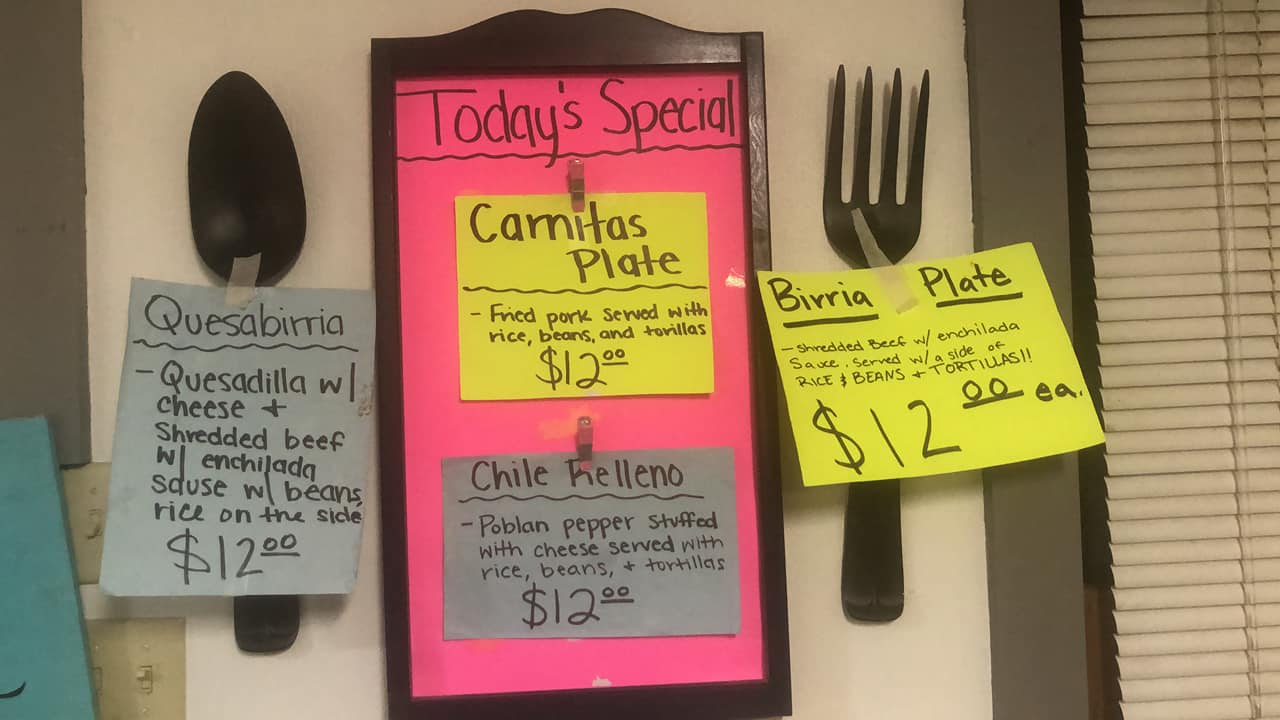 Today's Special
Carnitas
Plate
- Fried pork served with
rice, beans, and torillas
$12.00
Chile Relleno
- Poblan pepper stuffed
with cheese served with
rice, beans, + tortillas
$12.00
Quesabirria
- Quesadilla w/
cheese +
Shredded beef
w/ enchilada
sause w/ beans,
rice on the side
$12.00
Birria Plate
- Shredded Beef w/ enchilada
Sauce, served w/ a side of
RICE & BEANS + TORTILLAS!!
$12.00 ea.